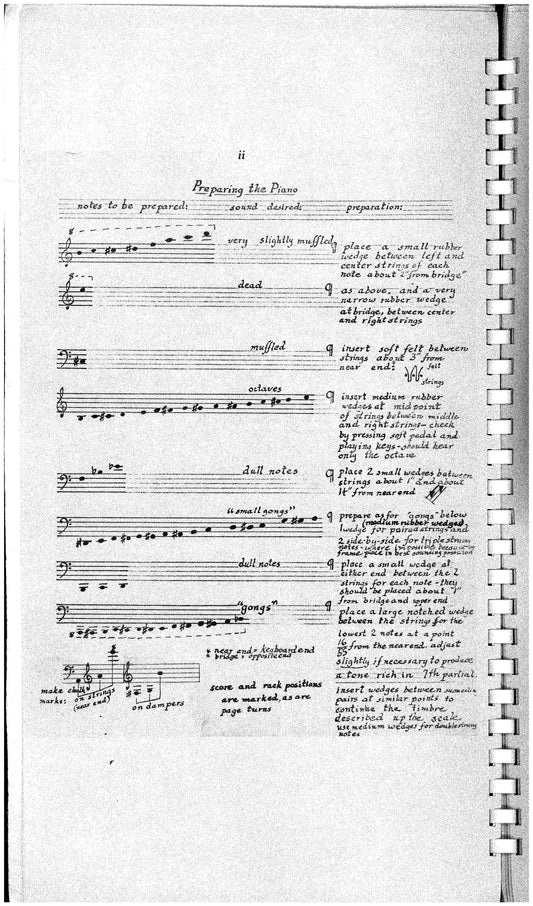 ii
Preparing the Piano
notes to be prepared: sound desired: preparation:
8
very slightly muffled
place a small rubber
wedge between left and
center strings of each
note about 2" from bridge*
8
dead
as above, and a very
narrow rubber wedge
at bridge, between center
and right strings
muffled
insert soft felt between
strings about 3" from
near end:
felt
strings
octaves
insert medium rubber
wedges at midpoint
of strings between middle
and right strings — check
by pressing soft pedal and
playing keys — should hear
only the octave
dull notes
place 2 small wedges between
strings about 1" and about
1½" from near end
"small gongs"
prepare as for "gongs" below
(medium rubber wedges)
1 wedge for paired strings and
2 side-by-side for triple strung
notes — where impossible because of
frame, place in best sounding position
dull notes
place a small wedge at
either end between the 2
strings for each note — they
should be placed about 1"
from bridge and upper end
"gongs"
8
place a large notched wedge
between the strings for the
lowest 2 notes at a point
16
55 from the near end. adjust
slightly if necessary to produce
a tone rich in 7th partial.
insert wedges between
pairs at similar points to
continue the timbre
described up the scale
use medium wedges for double strung
notes
* near end = keyboard end
* bridge = opposite end
make chalk
marks:
on strings
(near end)
on dampers
score and rack positions
are marked, as are
page turns